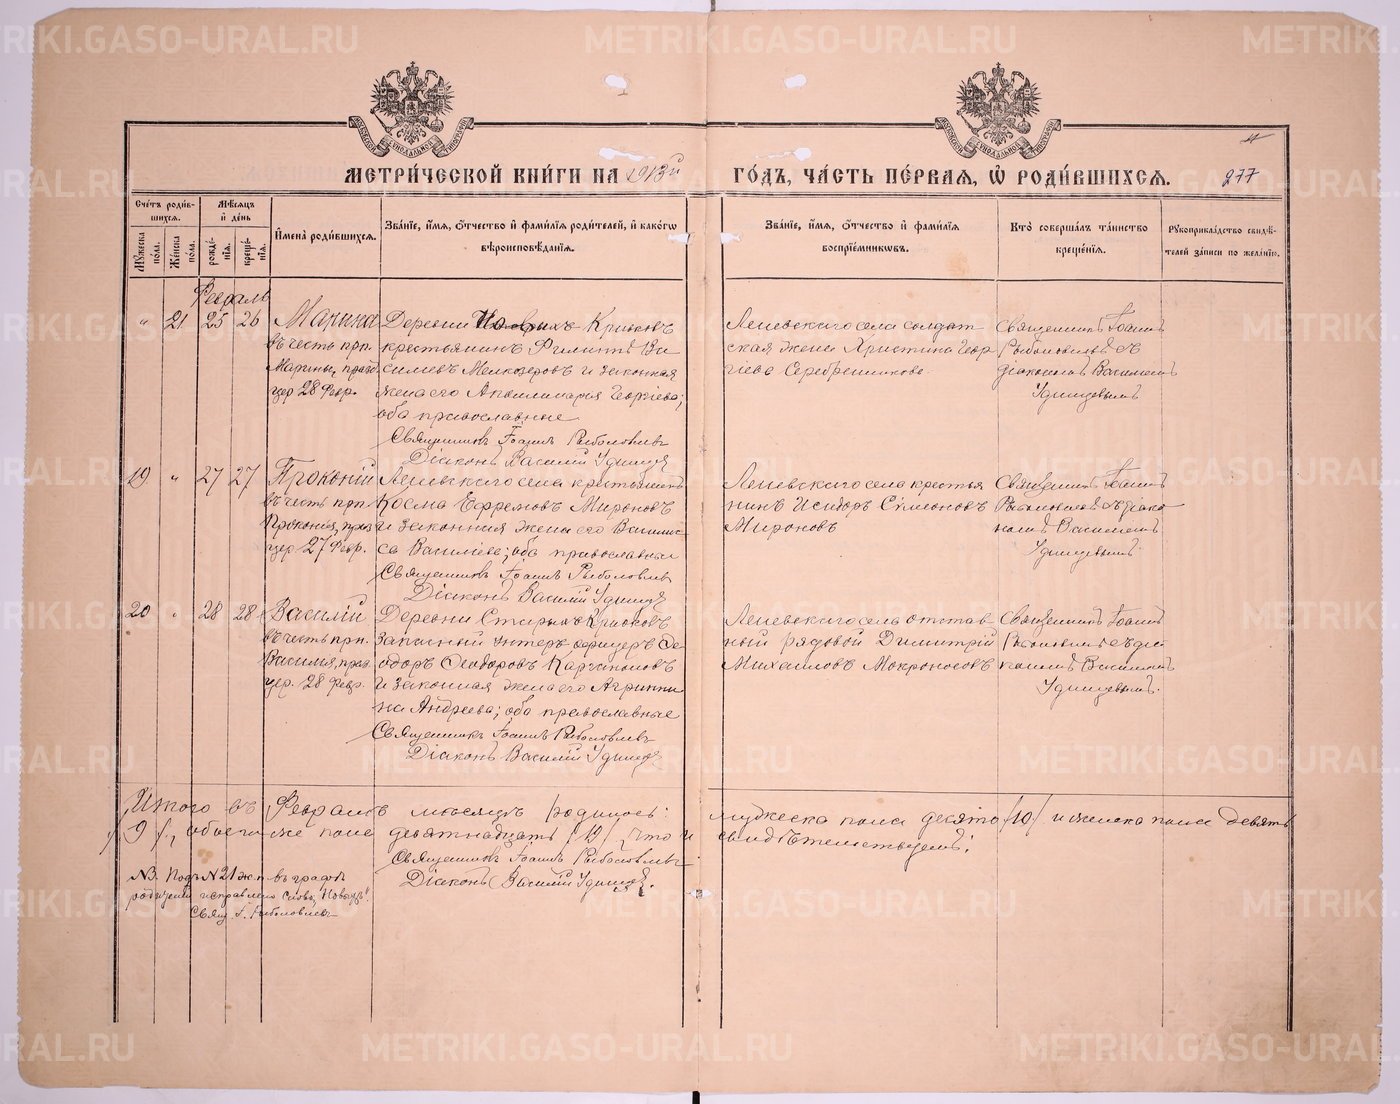 METRIKI.GASO-URAL.RU
МЕТРИ́ЧЕСКОЙ КНИ́ГИ НА 1913й ГО́ДЪ, ЧА́СТЬ ПЕ́РВАЯ, Ѡ РОДИ́ВШИХСЯ.
277
Сче́тъ роди́вшихся.
Му́жеска по́ла.
Же́нска по́ла.
Мѣ́сяцъ и де́нь
рожде́нія.
креще́нія.
Имена̀ роди́вшихся.
Зва́ніе, и́мя, ѻ́тчество и фами́лія роди́телей, и како́гѡ
вѣроисповѣ́данія.
Зва́ніе, и́мя, ѻ́тчество и фами́лія
воспріе́мниковъ.
Кто̀ соверша́лъ та́инство
креще́нія.
Рукоприкла́дство свидѣ́-
телей за́писи по жела́нію.
Февраль
" 21 25 26 Марина
въ честь прп.
Марины, празд
28 Февр.
Деревни Криков
крестьянинъ Филиппъ Ва
сильевъ Мелкозеровъ и законная
жена его Аполлинария Георгіева;
оба православные
Священникъ Іоаннъ Рыболовлевъ
Діаконъ Василій Удинцев
Леневскаго села солдат
ская жена Христина Геор
гіева Серебренникова.
Священникъ Іоаннъ
Рыболовлевъ съ
діакономъ Василіемъ
Удинцевымъ
19 " 27 27 Прокопій
въ честь прп
Прокопія, празд
27 Февр.
Леневскаго села крестьянинъ
Косма Ефремовъ Мироновъ
и законная жена его Васили
са Василіева; оба православные
Священникъ Іоаннъ Рыболовлевъ
Діаконъ Василій Удинцев
Леневскаго села крестья
нинъ Исидоръ Симоновъ
Мироновъ
Священникъ Іоаннъ
Рыболовлевъ съ діако
номъ Василіемъ
Удинцевымъ.
20 " 28 28 Василій
въ честь прп.
Василія, празд
28 Февр.
Деревни Старыхъ Криковъ
Запасный унтеръ офицеръ Ѳе
одоръ Ѳеодоровъ Каргаполовъ
и законная жена его Агриппи
на Андреева; оба православные
Священникъ Іоаннъ Рыболовлевъ
Діаконъ Василій Удинцев
Леневскаго села отстав
ный рядовой Димитрій
Михаиловъ Мокроносовъ
Священникъ Іоаннъ
Рыболовлевъ съ діа
кономъ Василіемъ
Удинцевымъ.
Итого въ Февралѣ мѣсяцѣ родилось: мужеска пола десять /10/ и женска пола девять
/9/, обоего же пола девятнадцать /19/, что и свидѣтельствуемъ:
Священникъ Іоаннъ Рыболовлевъ
Діаконъ Василій Удинцев.
N3. Подъ №21 ж.п. въ графѣ
исправлено слово "Новыхъ".
Свящ. І. Рыболовлевъ